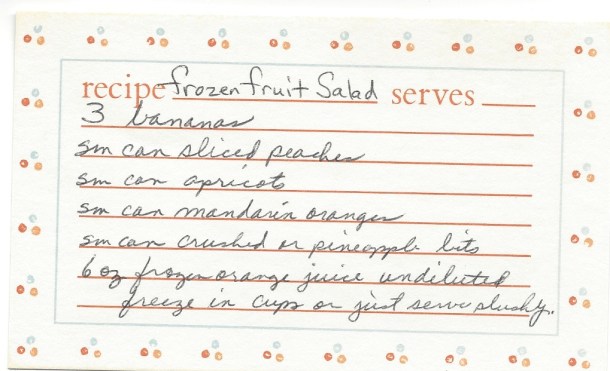 recipe Frozen Fruit Salad serves
3 bananas
sm can sliced peaches
sm can apricots
sm can mandarin oranges
sm can crushed or pineapple bits
6 oz frozen orange juice undiluted
freeze in cups or just serve slushy.